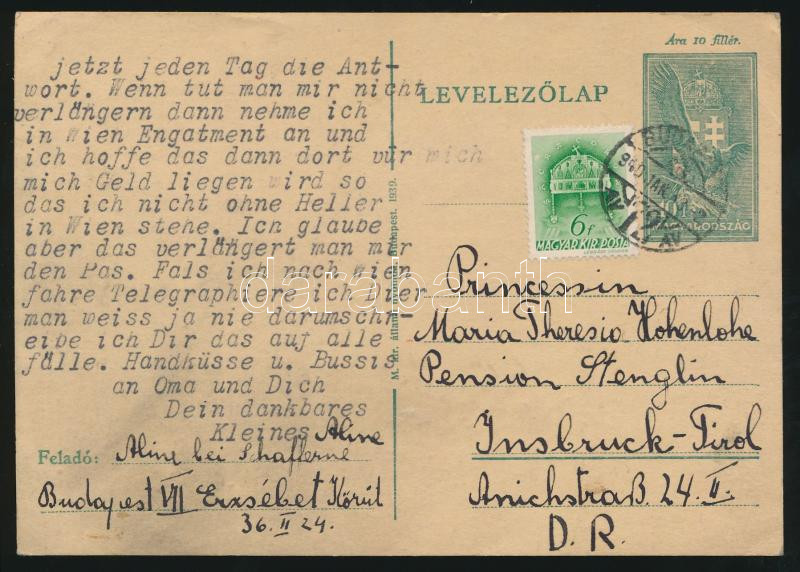 Ára 10 fillér.
LEVELEZŐLAP
6f
MAGYAR KIR. POSTA
jetzt jeden Tag die Ant-
wort. Wenn tut man mir nicht
verlängern dann nehme ich
in Wien Engatment an und
ich hoffe das dann dort vür mich
mich Geld liegen wird so
das ich nicht ohne Heller
in Wien stehe. Ich glaube
aber das verlängert man mir
den Pas. Fals ich nach Wien
fahre Telegraphiere ich Dier
man weiss ja nie darumschr-
eibe ich Dir das auf alle
fälle. Handküsse u. Bussis
an Oma und Dich
Dein dankbares
Kleines Aline
Feladó: Aline bei Schafferne
Budapest VII Erzsébet Körút
36. II 24.
Princessin
Maria Theresia Hohenlohe
Pension Stenglin
Insbruck-Tirol
Anichstraß. 24. II.
D. R.
darabanth